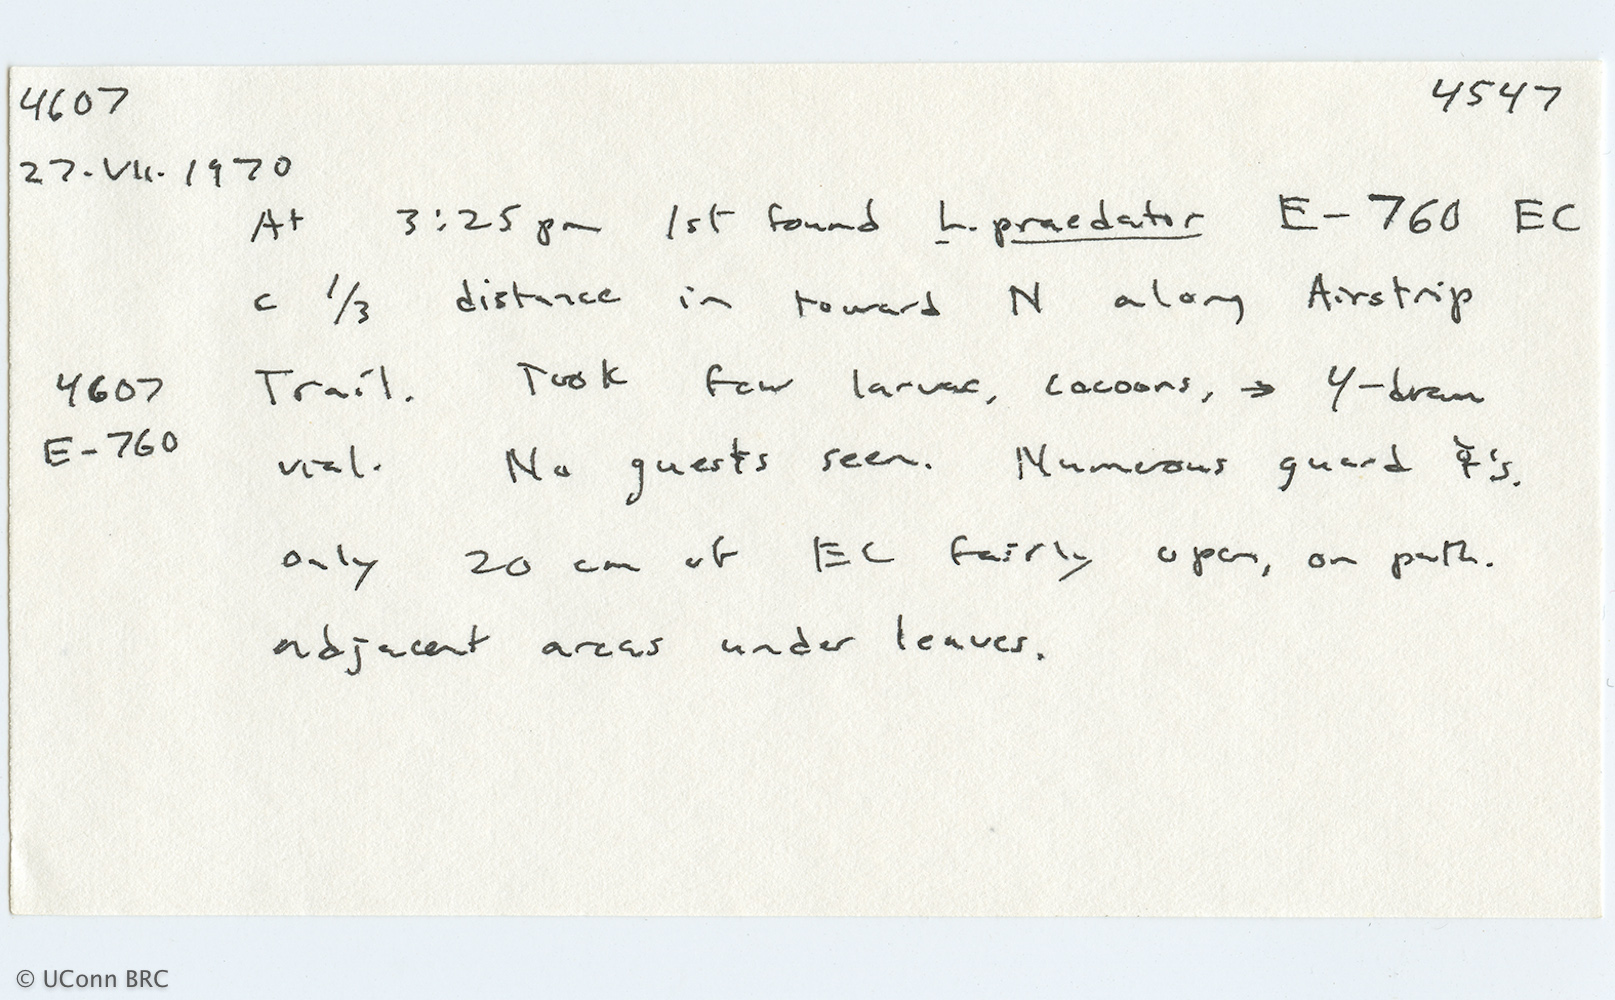 4607 4547
27.VII.1970
At 3:25 pm 1st found L. praedator E-760 EC
c 1/3 distance in toward N along Airstrip
4607 Trail. Took few larvae, cocoons, → 4-dram
E-760 vial. No guests seen. Numerous guard ☿'s.
only 20 cm of EC fairly open, on path.
adjacent areas under leaves.
© UConn BRC